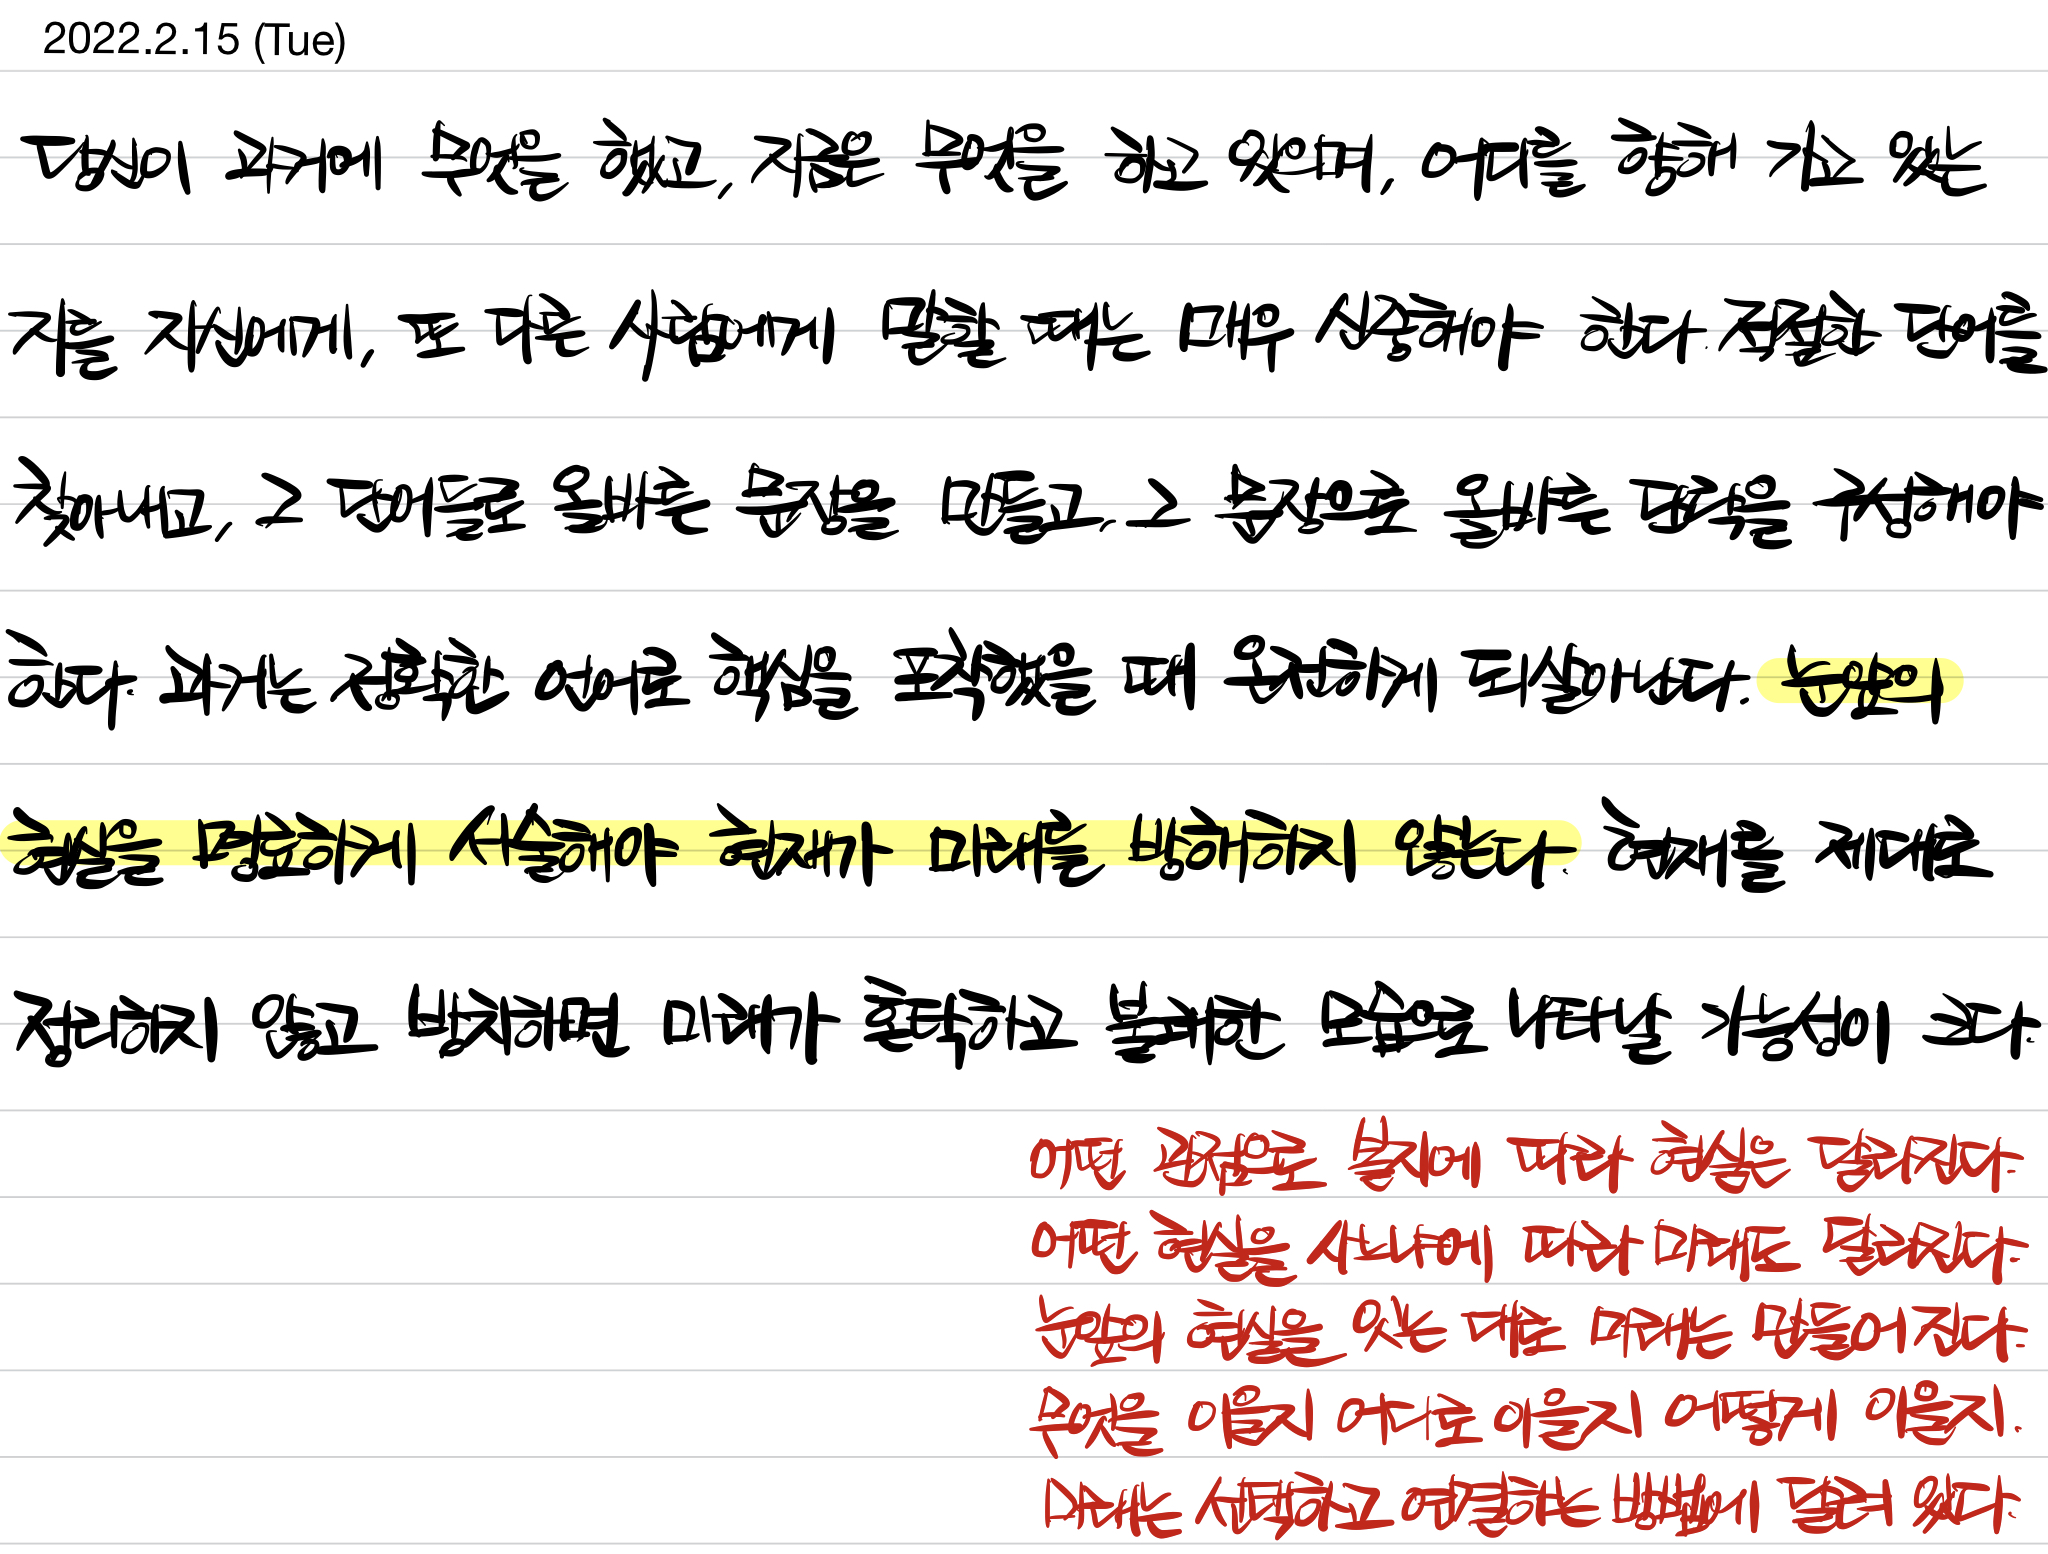 2022.2.15 (Tue)
당신이 과거에 무엇을 했고, 지금은 무엇을 하고 있으며, 어디를 향해 가고 있는
지를 자신에게, 또 다른 사람에게 말할 때는 매우 신중해야 한다. 적절한 단어를
찾아내고, 그 단어들로 올바른 문장을 만들고, 그 문장으로 올바른 단락을 구성해야
한다. 과거는 정확한 언어로 핵심을 포착했을 때 온전하게 되살아난다. 눈앞의
현실을 명료하게 서술해야 현재가 미래를 방해하지 않는다. 현재를 제대로
정리하지 않고 방치하면 미래가 혼탁하고 불쾌한 모습으로 나타날 가능성이 크다.
어떤 관점으로 볼지에 따라 현실은 달라진다.
어떤 현실을 사느냐에 따라 미래도 달라진다.
눈앞의 현실을 잇는 대로 미래는 만들어진다.
무엇을 이을지 어디로 이을지 어떻게 이을지.
미래는 선택하고 연결하는 방법에 달려 있다.